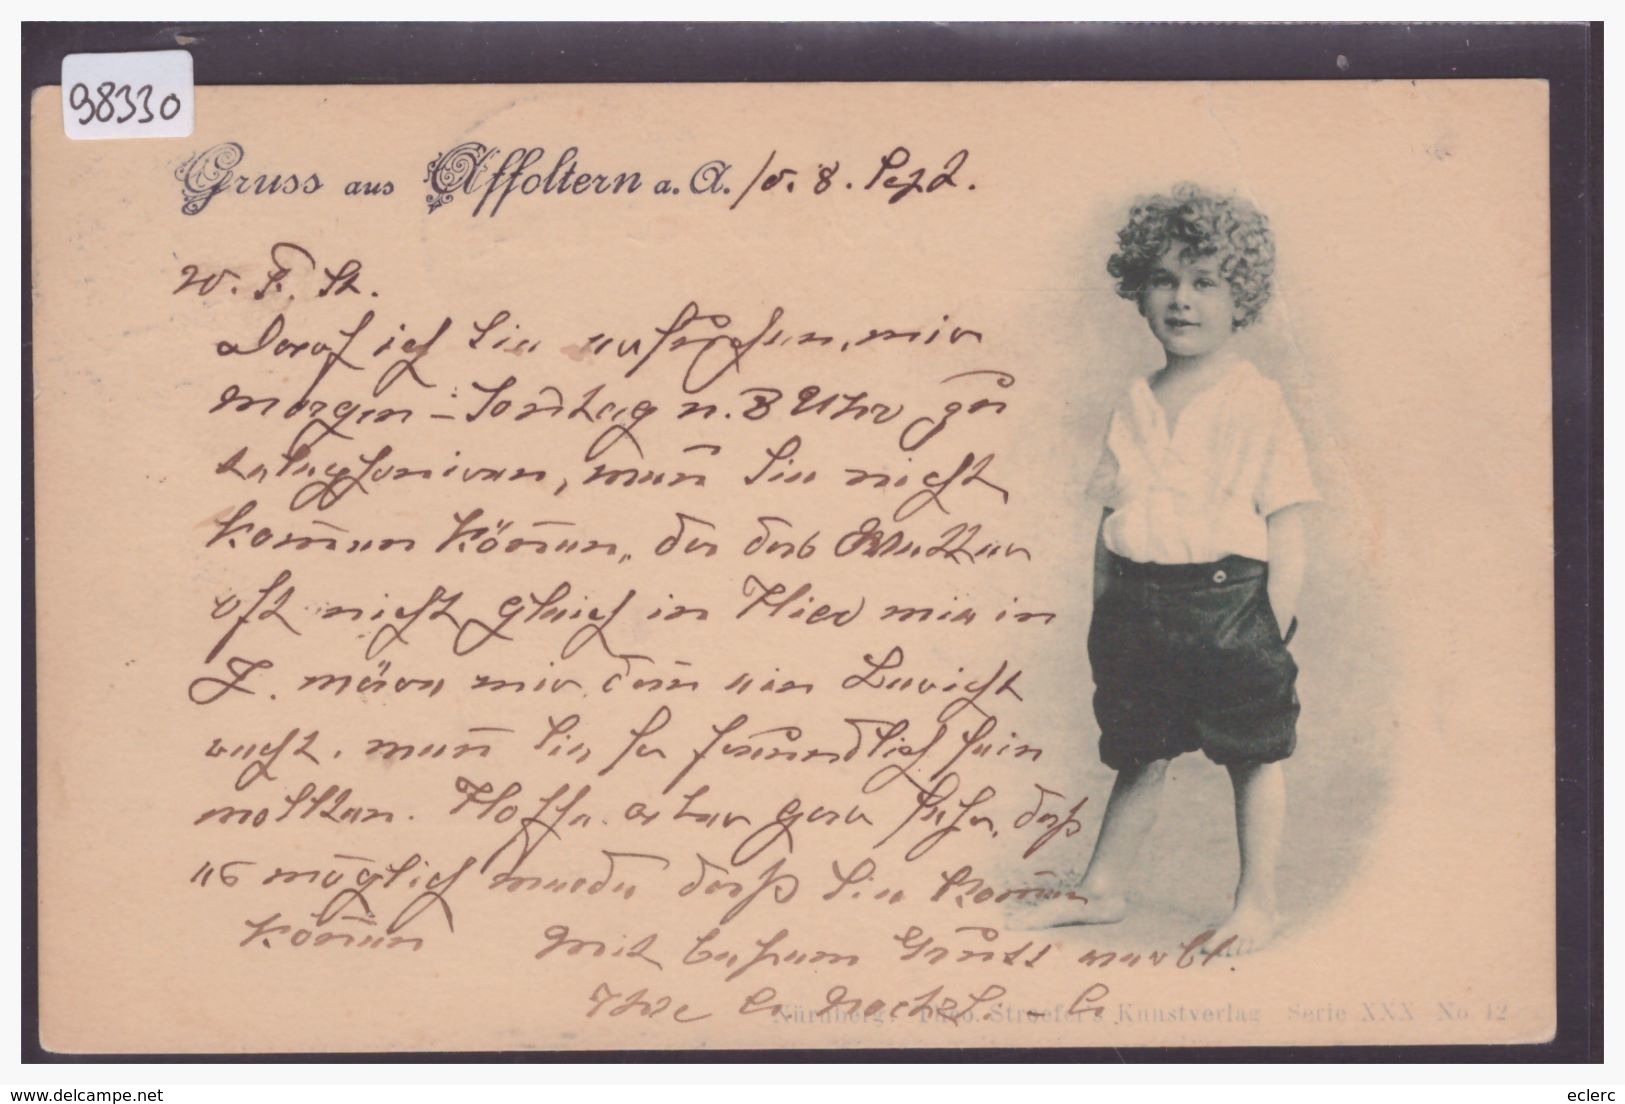 98330
Gruss aus Affoltern a. A. / d. 8. Sept.
W. F. St.
Darf ich Sie ersuchen, mir
morgen - Sonntag n. 3 Uhr zu
telephoniren, wenn Sie nicht
kommen können, da das Wetter
oft nicht gleich in Hier wie in
Z. wäre mir dann ein Bericht
recht. wenn Sie so freundlich sein
wollten. Hoffe aber gern sehr, daß
es möglich werde daß Sie kommen
können Mit besten Gruss
Ihre
Nürnberg. Theo. Stroefer's Kunstverlag Serie XXX No. 12
www.delcampe.net
eclerc